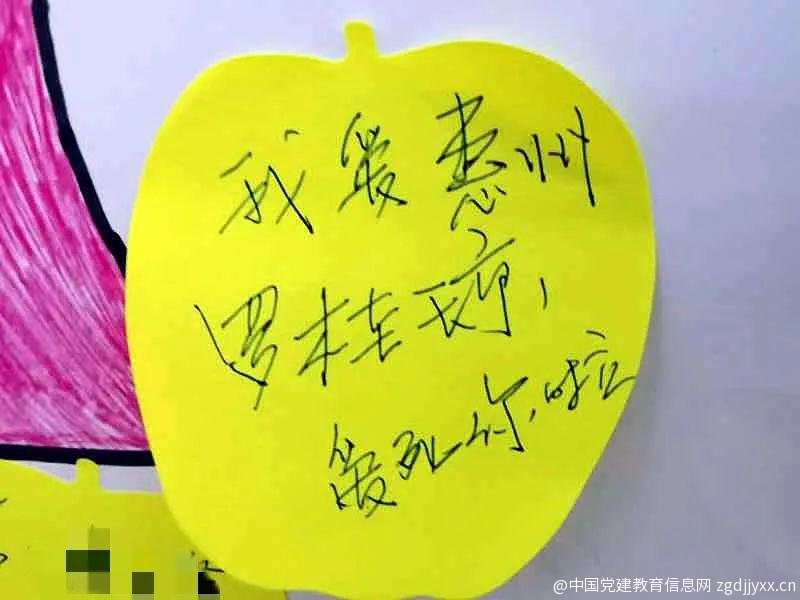 我爱惠州
罗桂琼,
爱死你,啦
@中国党建教育信息网 zgdjjyxx.cn